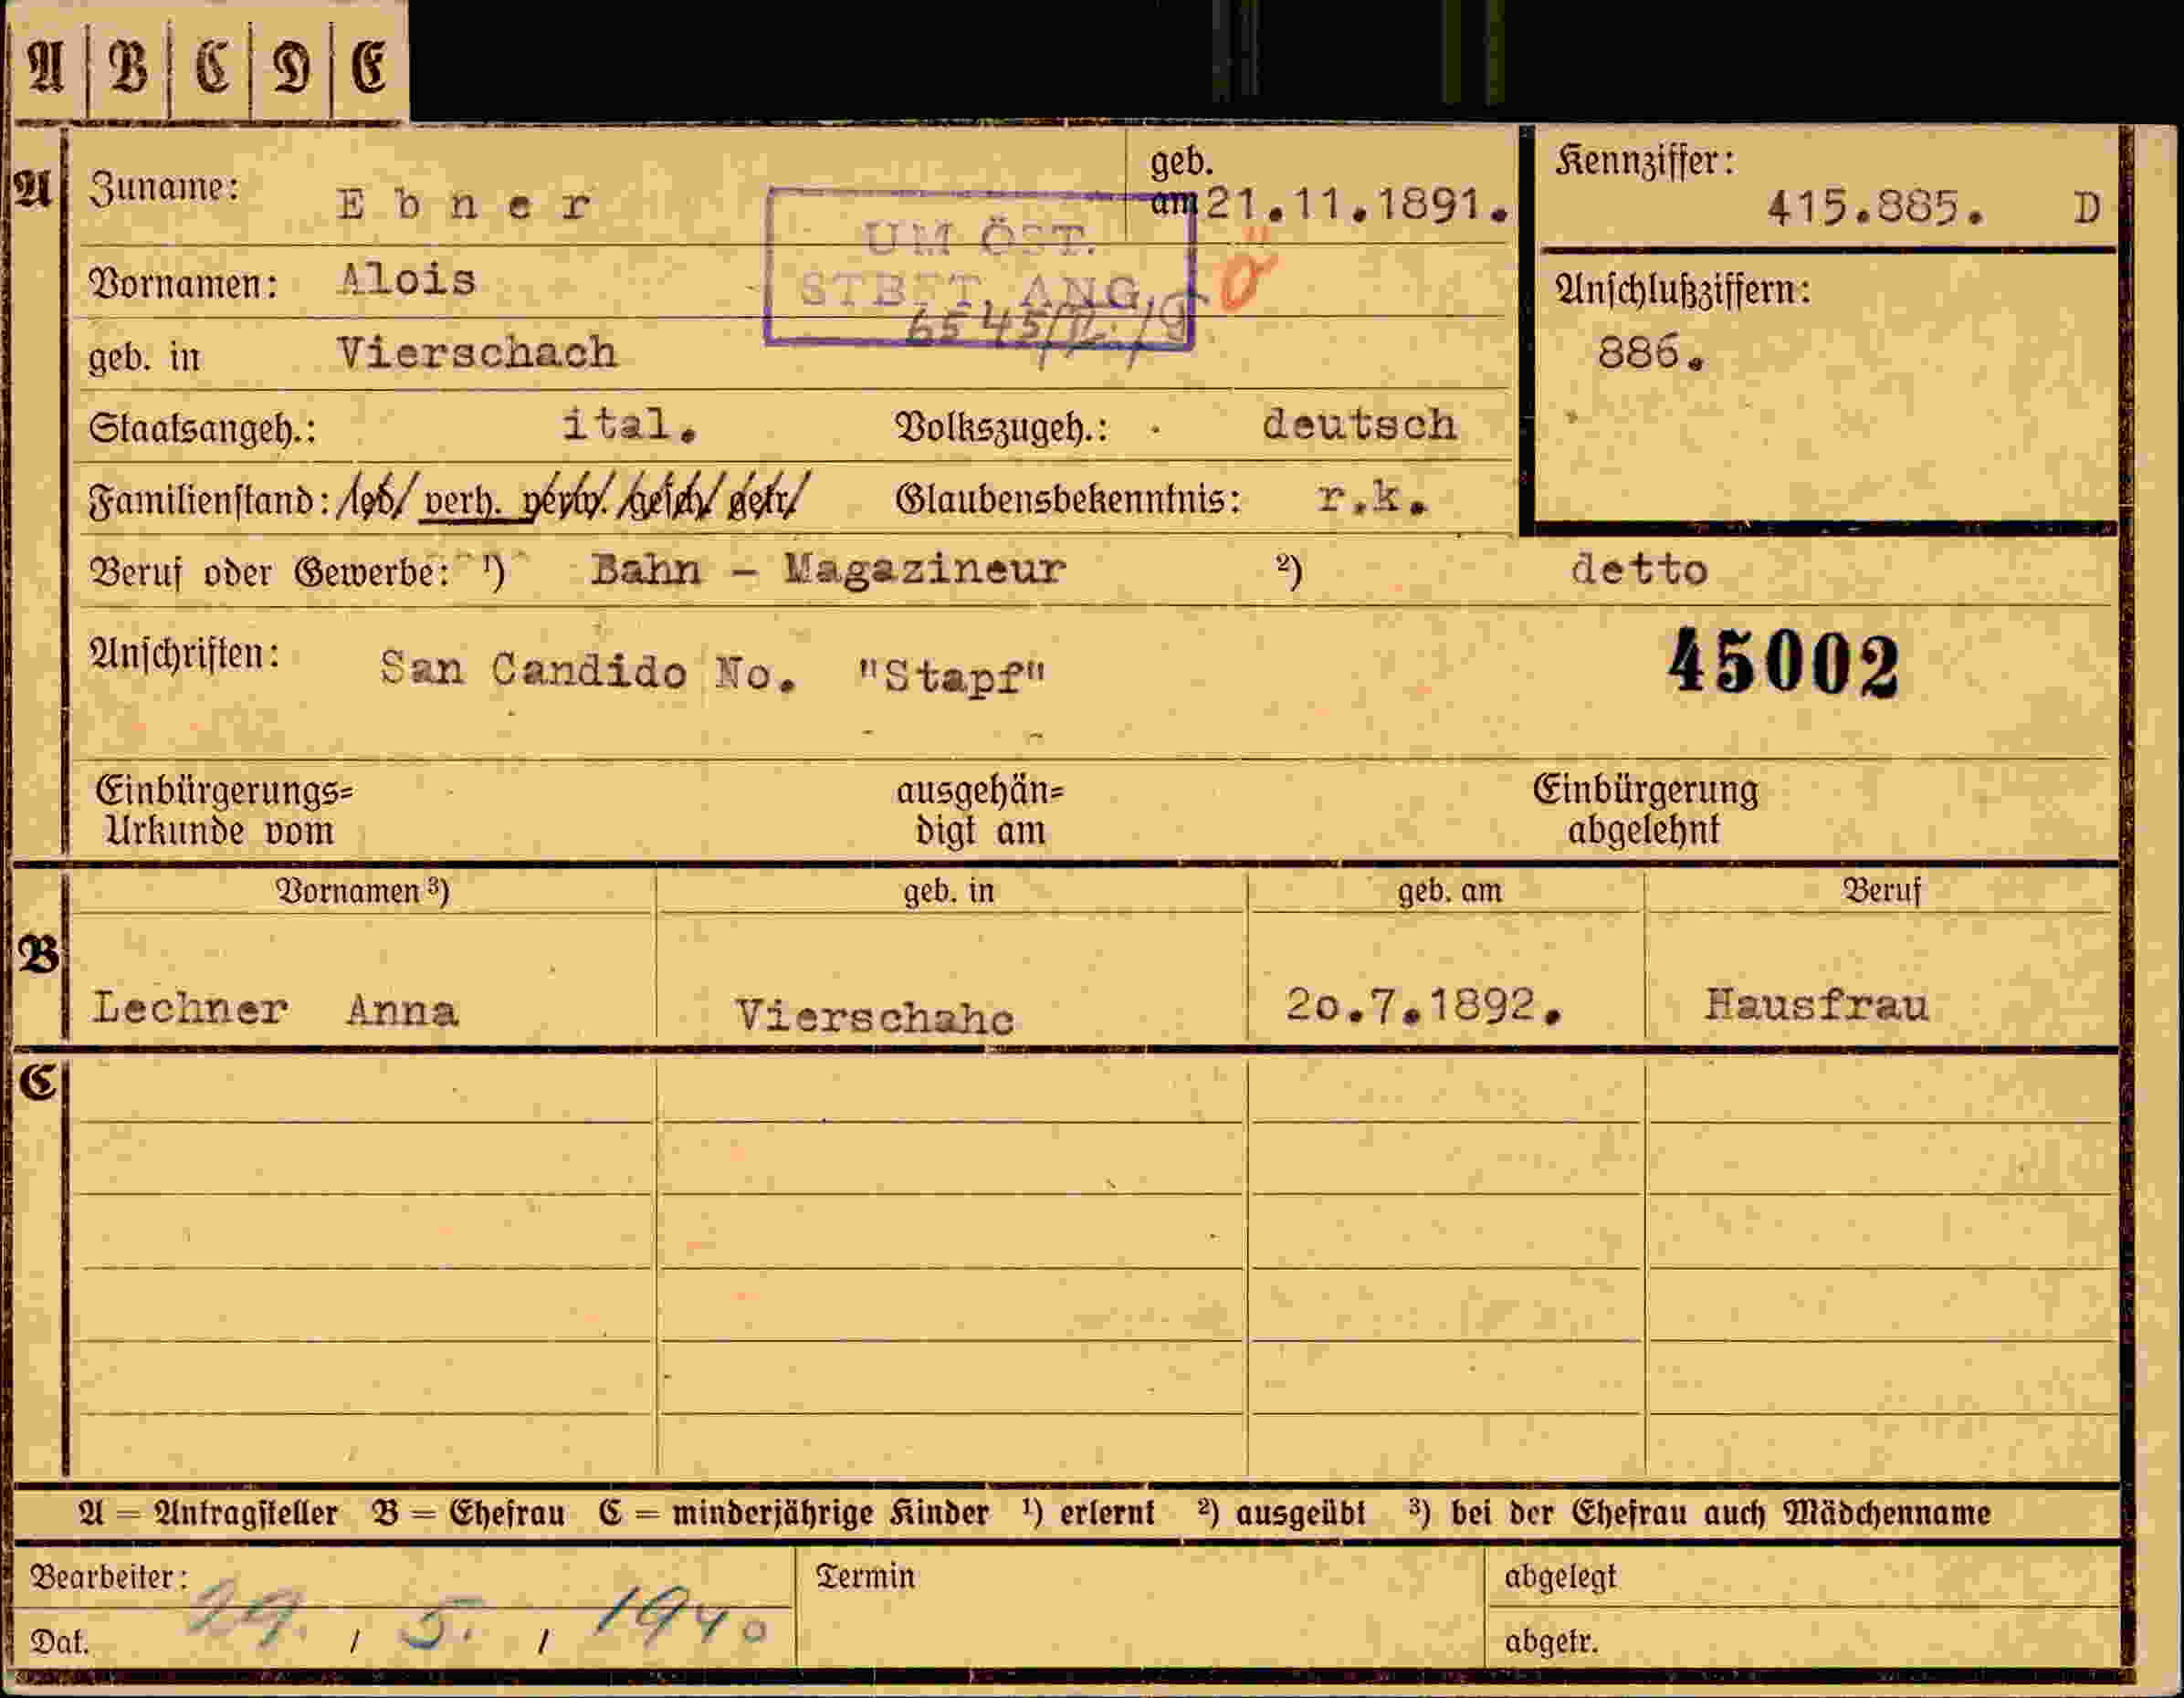 A B C D E
A Zuname: Ebner geb. am 21.11.1891. Kennziffer: 415.885. D
UM ÖST. STBFT. ANG.
Ö
Vornamen: Alois Anschlußziffern:
geb. in Vierschach 886.
Staatsangeh.: ital. Volkszugeh.: deutsch
Familienstand: led. verh. verw. gesch. getr. Glaubensbekenntnis: r.k.
Beruf oder Gewerbe: 1) Bahn - Magazineur 2) detto
Anschriften: San Candido No. "Stapf" 45002
Einbürgerungs= ausgehän= Einbürgerung
Urkunde vom digt am abgelehnt
Vornamen 3) geb. in geb. am Beruf
B
Lechner Anna Vierschahc 20.7.1892. Hausfrau
C
A = Antragsteller B = Ehefrau C = minderjährige Kinder 1) erlernt 2) ausgeübt 3) bei der Ehefrau auch Mädchenname
Bearbeiter: Termin abgelegt
Dat. 29. / 5. / 1940 abgetr.